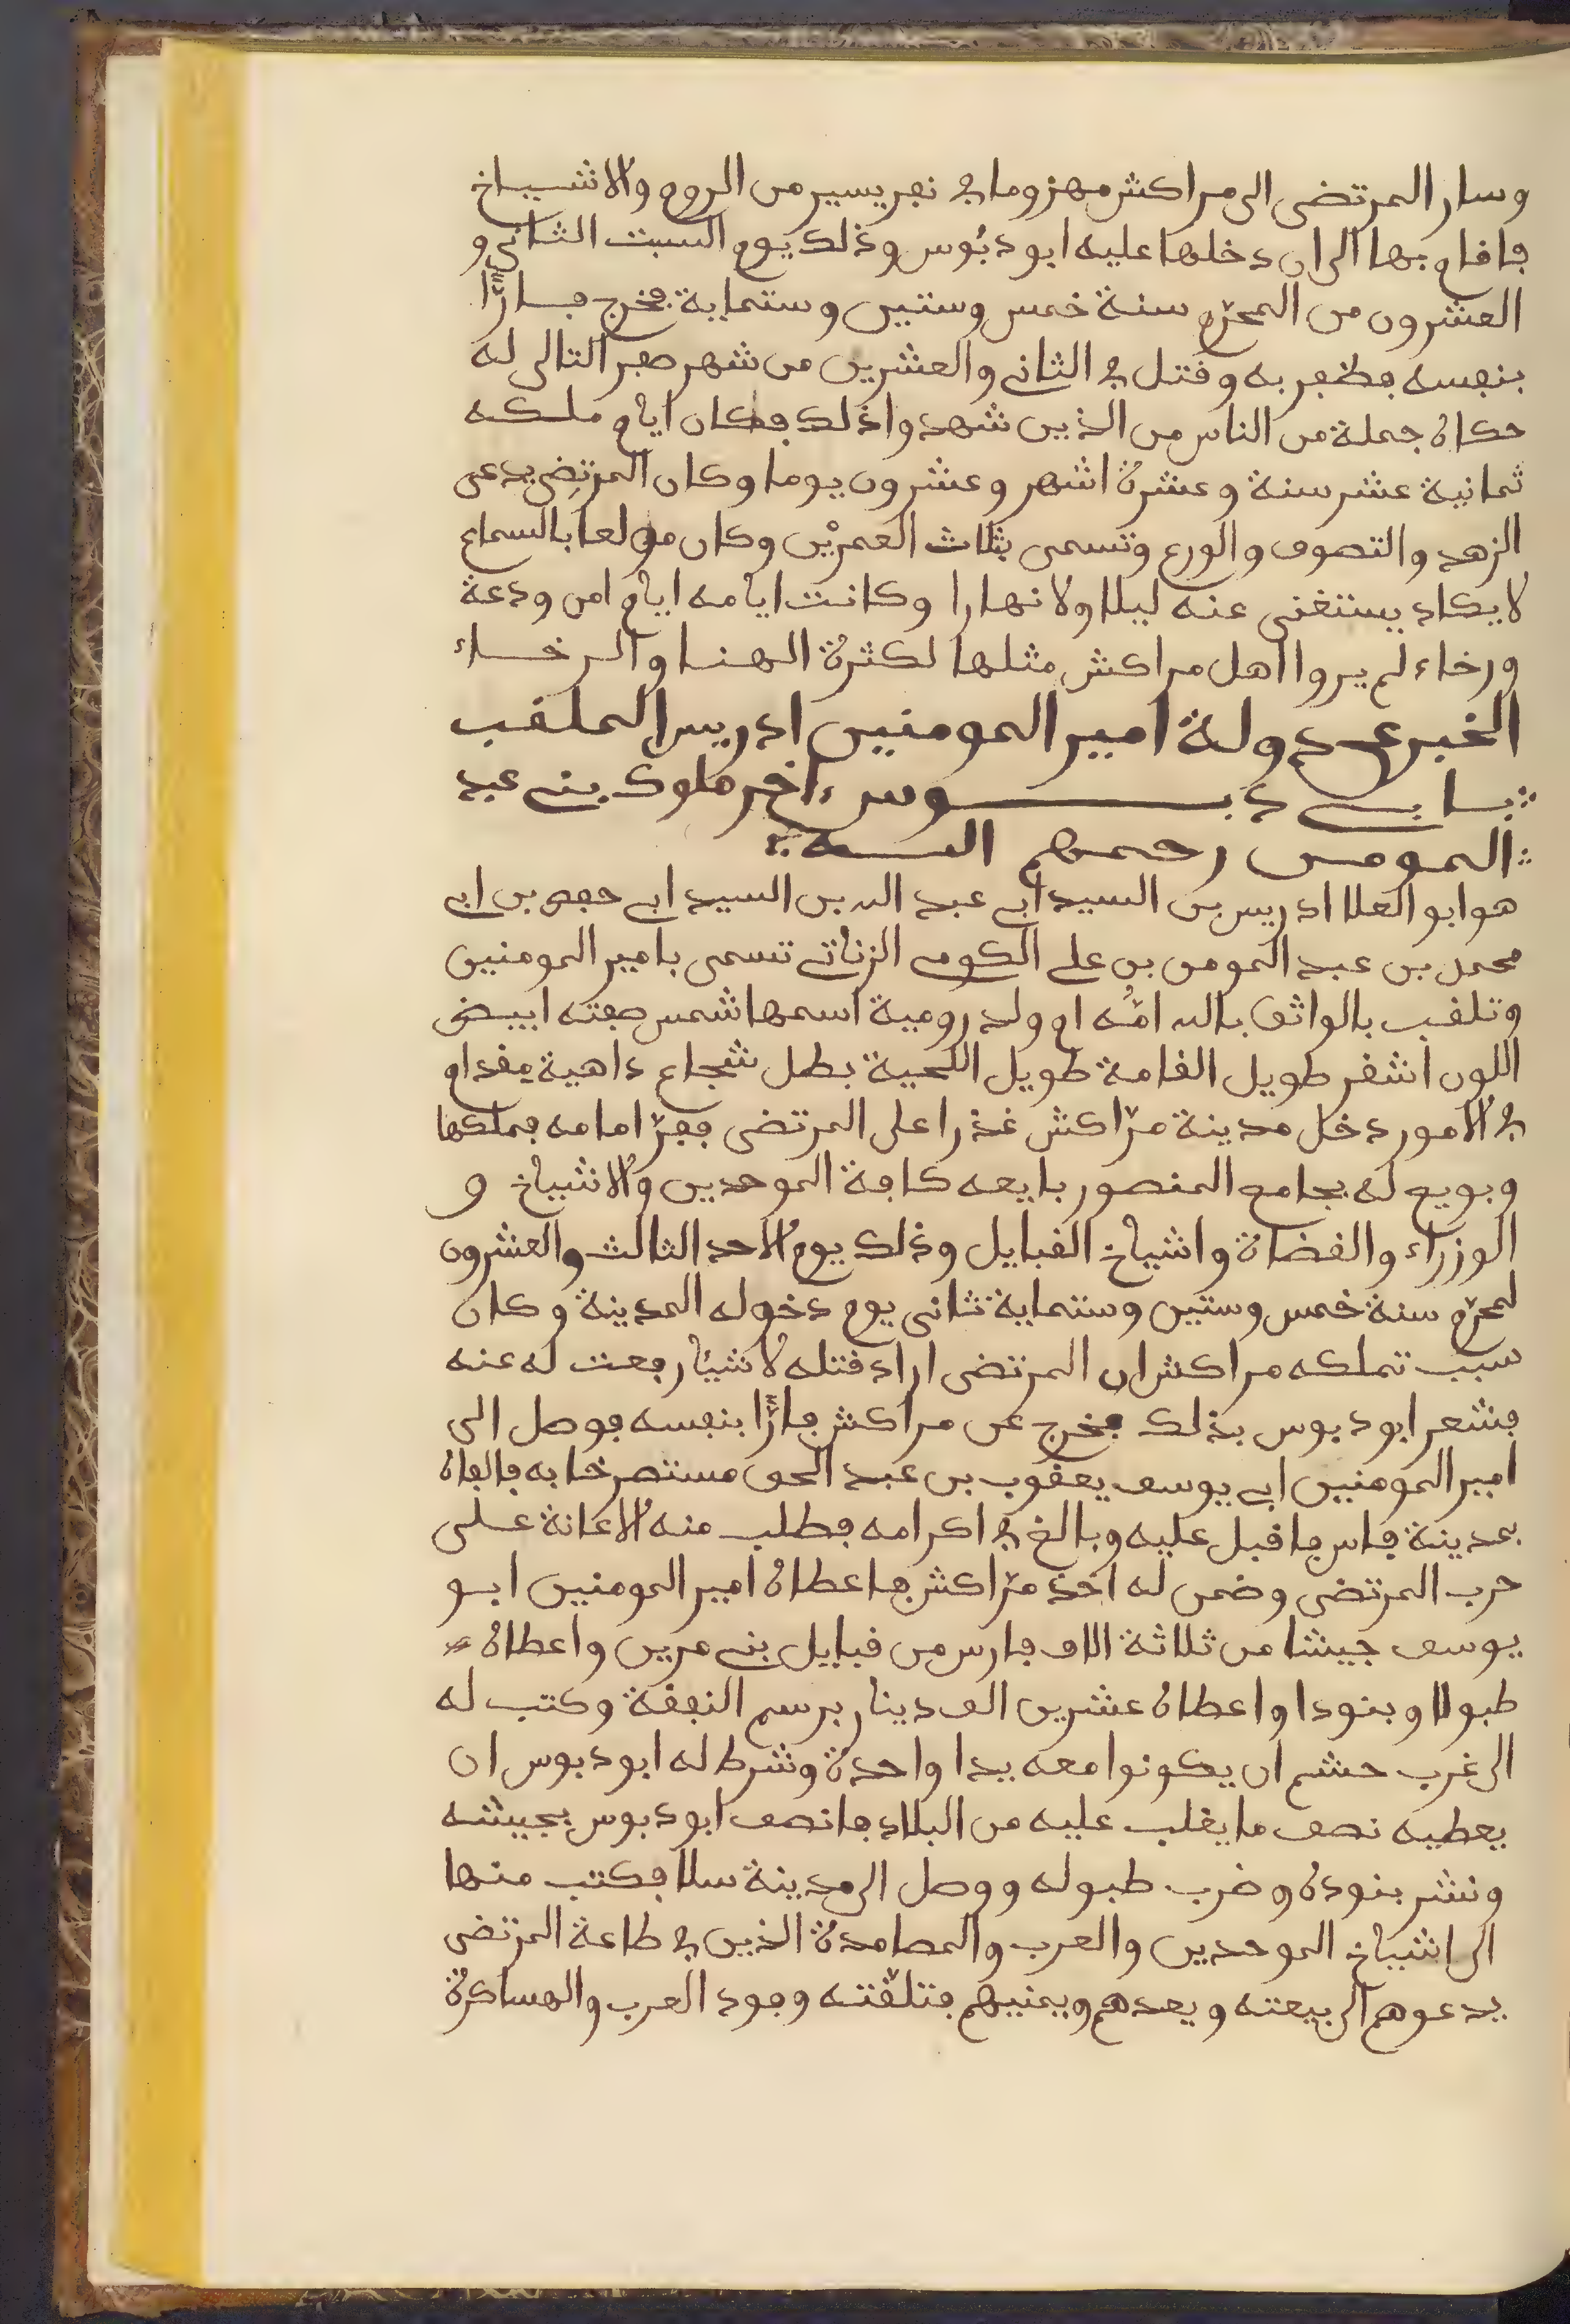 وسار المرتضى الى مراكش مهزوما في نفر يسير من الروم والاشياخ
فاقام بها الى ان دخلها عليه ابو دبوس وذلك يوم السبت الثاني و
العشرون من المحرّم سنة خمس وستين وستماية فخرج فارًّا
بنفسه فظفر به وقتل في الثاني والعشرين من شهر صفر التالى له
حكاه جملة من الناس من الذين شهدوا ذلك فكان ايام ملكه
ثمانية عشر سنة وعشرة اشهر وعشرون يوما وكان المرتضى يدعى
الزهد والتصوف والورع وتسمى بثلاث العمريْن وكان مولعا بالسماع
لا يكاد يستغنى عنه ليلا ولا نهارا وكانت ايامه ايام امن ودعة
ورخاء لم يروا اهل مراكش مثلها لكثرة الهنا والرخاء
الخبر عن دولة امير المومنين ادريس الملقب
بابي دبوس اخر ملوك بني عبد
المومن رحمهم الله
هو ابو العلا ادريس بن السيد ابي عبد الله بن السيد ابي حفص بن ابي
محمد بن عبد المومن بن علي الكومي الزناتي تسمى بامير المومنين
وتلقب بالواثق بالله امّه ام ولد رومية اسمها شمس صفته ابيض
اللون اشقر طويل القامة طويل اللحية بطل شجاع داهية مقدام
في الامور دخل مدينة مرّاكش غذرا على المرتضى ففرّ امامه فملكها
وبويع له بجامع المنصور بايعه كافة الموحدين والاشياخ و
الوزراء والقضاة واشياخ القبايل وذلك يوم الاحد الثالث والعشرون
لمحرّم سنة خمس وستين وستماية ثانى يوم دخوله المدينة وكان
سبب تملكه مراكش ان المرتضى اراد قتله لاشيّا رفعت له عنه
فشعر ابو دبوس بذلك فخرج عن مراكش فارًّا بنفسه فوصل الى
امير المومنين ابي يوسف يعقوب بن عبد الحق مستصرخا به فالفاه
بمدينة فاس فاقبل عليه وبالغ في اكرامه فطلب منه الاعانة على
حرب المرتضى وضمن له اخذ مرّاكش فاعطاه امير المومنين ابو
يوسف جيشا من ثلاثة الاف فارس من قبايل بني مرين واعطاه
طبولا وبنودا واعطاه عشرين الف دينار برسم النفقة وكتب له
الى غرب حشم ان يكونوا معه يدا واحدة وشرط له ابو دبوس ان
يعطيه نصف ما يغلب عليه من البلاد فانصف ابو دبوس بجيشه
ونشر بنوده وضرب طبوله ووصل الى مدينة سلا فكتب منها
الى اشياخ الموحدين والعرب والمصامدة الذين في طاعة المرتضى
يدعوهم الى بيعته ويعدهم ويمنيهم فتلقّته وفود العرب والهساكرة